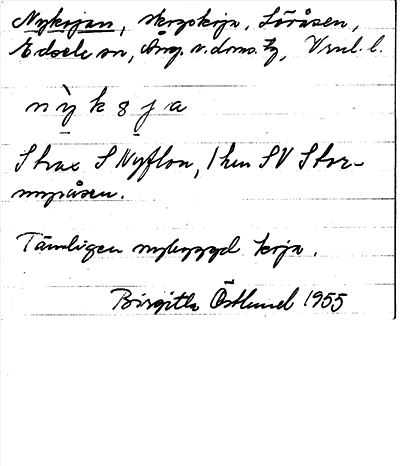 Nykojan, skogskoja, Löråsen,
Edsele sn, Ång. v. doms. tg, Vml. l.
nỳkoja
Strax S Nyflon, 1 km SV Stor-
myråsen.
Tämligen nybyggd koja.
Birgitta Östlund 1955